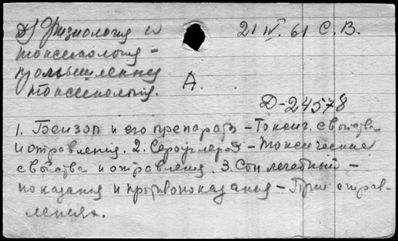 д) Физиология и 21 IV. 61 С. В.
токсикология -
промышленная
токсикология. А.
Д-24578
1. Бензол и его препараты - Токсич. свойства
и отравления. 2. Сероуглерод - Токсические
свойства и отравления. 3. Сон лечебный -
показания и противопоказания - При отрав-
лениях.